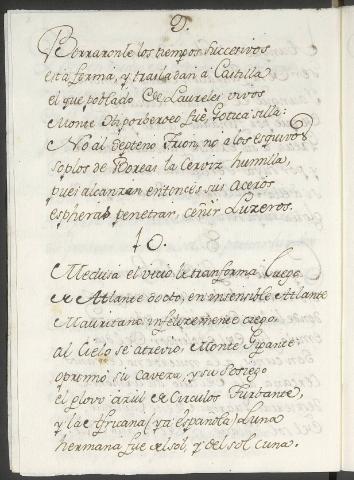 9.
Borraronle los tiempos succesivos
esta forma, y trasladan a Castilla
el que poblado de Laureles vivos
Monte
fue, Gotica silla:
No al Septeno Trion, no a los esquivos
soplos de Boreas la Cerviz humilla,
pues alcanzan entonces sus Aceros
espheras penetrar, ceñir Luzeros.
10.
Medusa el vicio le transforma luego
de Atlante docto, en insensible Atlante
Mauritano infelizemente ciego
al Cielo se atrevio Monte Gigante
oprimio su caveza, y su sosiego
el globo azul de Circulos Turbante,
y la Africana (ya española) Luna
hermana fue del sol, y del sol cuna.